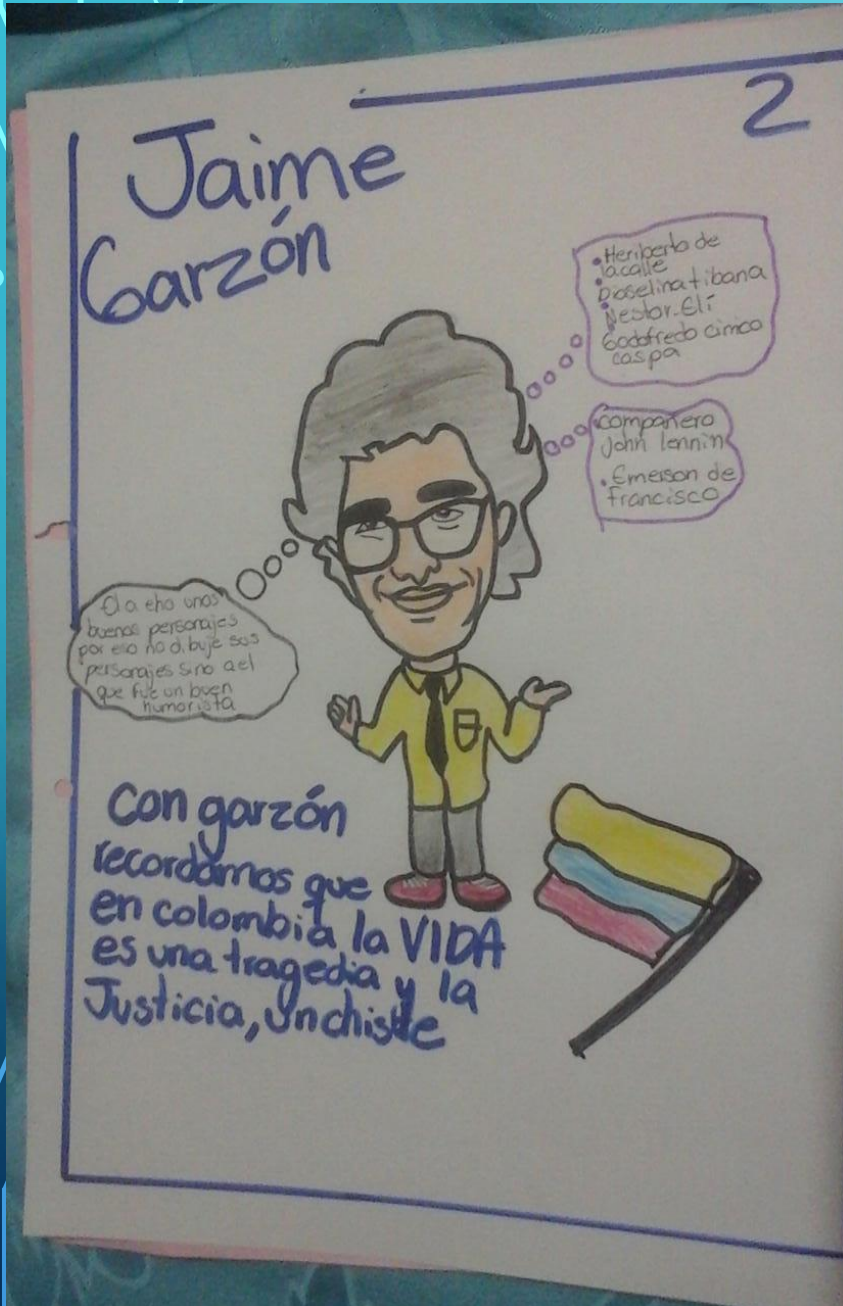 2
Jaime
Garzón
• Heriberto de
lacalle
• Dioselina tibana
• Nestor-Elí
• Godofredo cinico
caspa
• compañero
John lennin
• Emerson de
francisco
El a eho unos
buenos personajes
por eso no dibuje sus
personajes sino a el
que fue un buen
humorista
Con garzón
recordamos que
en colombia la VIDA
es una tragedia y la
Justicia, un chiste